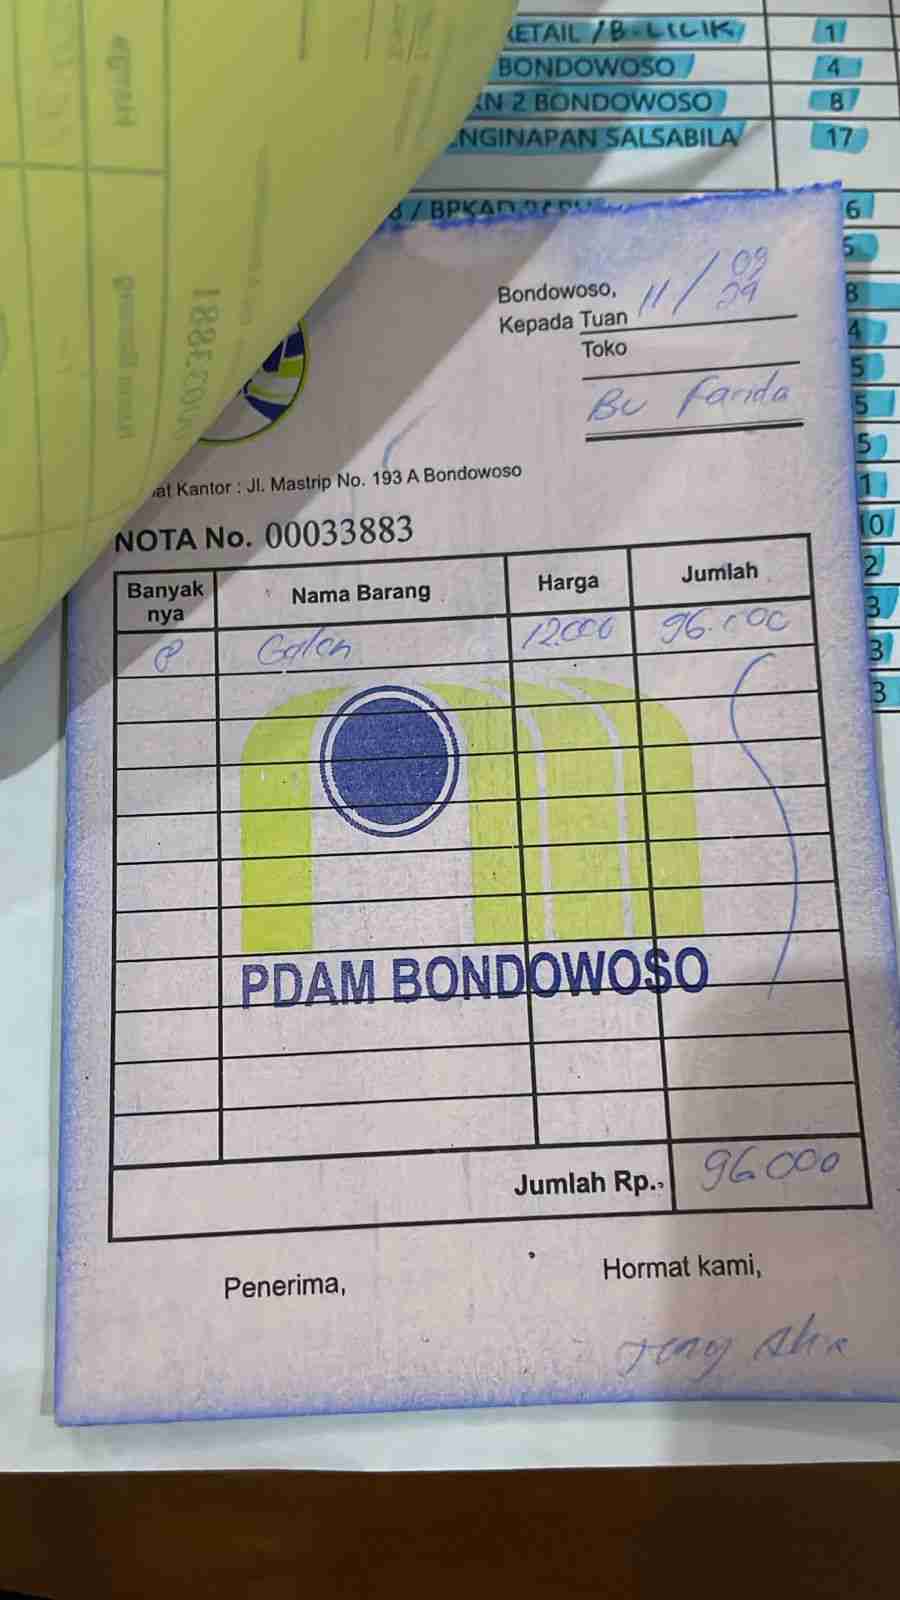 RETAIL / B-LILIK 1
BONDOWOSO 4
N 2 BONDOWOSO 8
ENGINAPAN SALSABILA 17
/ BPKAD 6
5
8
4
5
5
5
1
10
2
3
3
3
Bondowoso, 11 / 09
Kepada Tuan
Toko
Bu Farida
at Kantor : Jl. Mastrip No. 193 A Bondowoso
NOTA No. 00033883
Banyak nya Nama Barang Harga Jumlah
8 Galon 12.000 96.000
PDAM BONDOWOSO
Jumlah Rp. 96.000
Penerima, Hormat kami,